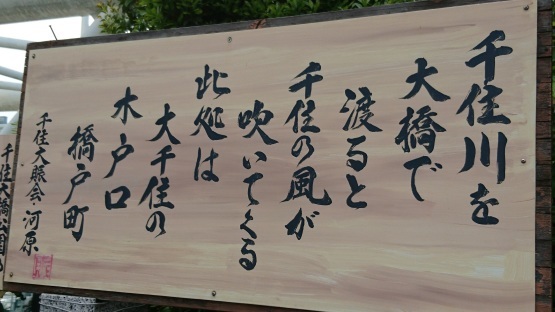 千住川を
大橋で
渡ると
千住の風が
吹いてくる
此処は
大千住の
木戸口
橋戸町
千住大賑会・河原
千住大橋公園